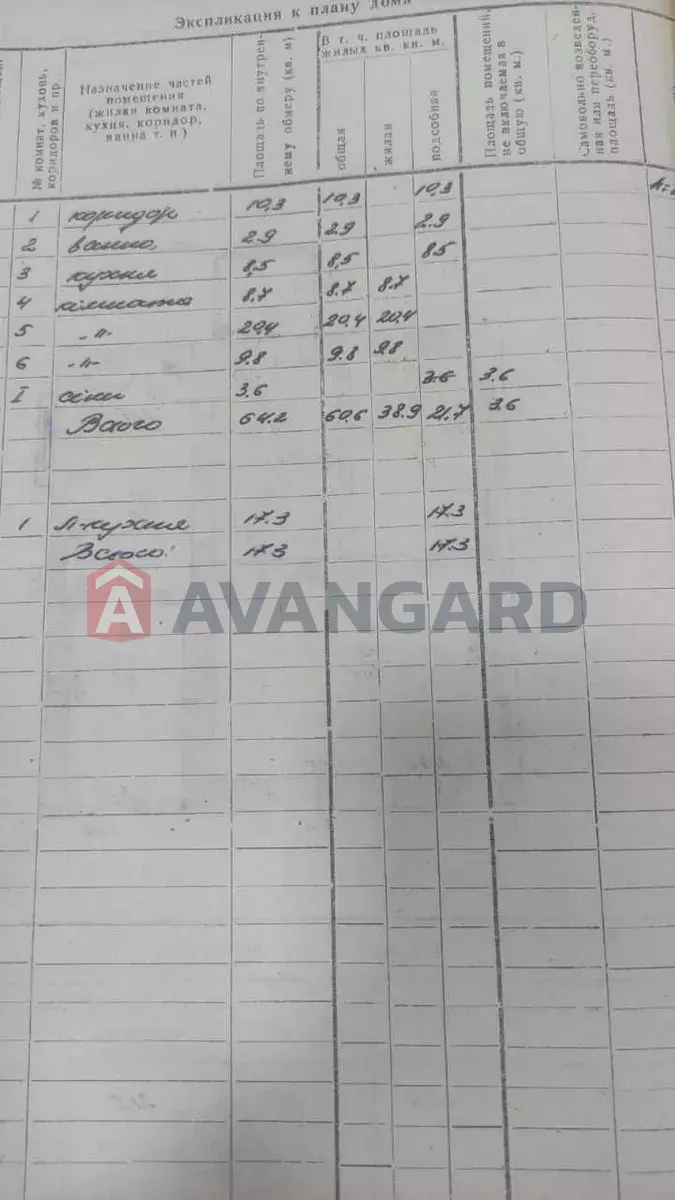 Экспликация к плану дома
№ комнат, кухонь, коридоров и пр.
Назначение частей помещения (жилая комната, кухня, коридор, ванна т. п.)
Площадь по внутреннему обмеру (кв. м)
В т. ч. площадь жилых кв. кв. м.
общая
жилая
подсобная
Площадь помещений, не включаемая в общую (кв. м.)
Самовольно возведенная или переоборуд. площадь (кв. м.)
1 коридор 10,3 10,3 10,3
2 ванно, 2.9 2.9 2.9
3 кухня 8,5 8,5 8.5
4 кімната 8.7 8.7 8.7
5 -"- 20,4 20,4 20,4
6 -"- 9.8 9.8 9.8
I сіни 3.6 3.6 3.6
Всього 64.2 60,6 38.9 21.7 3.6
1 л-кухня 17.3 17.3
Всього: 17.3 17.3
AVANGARD